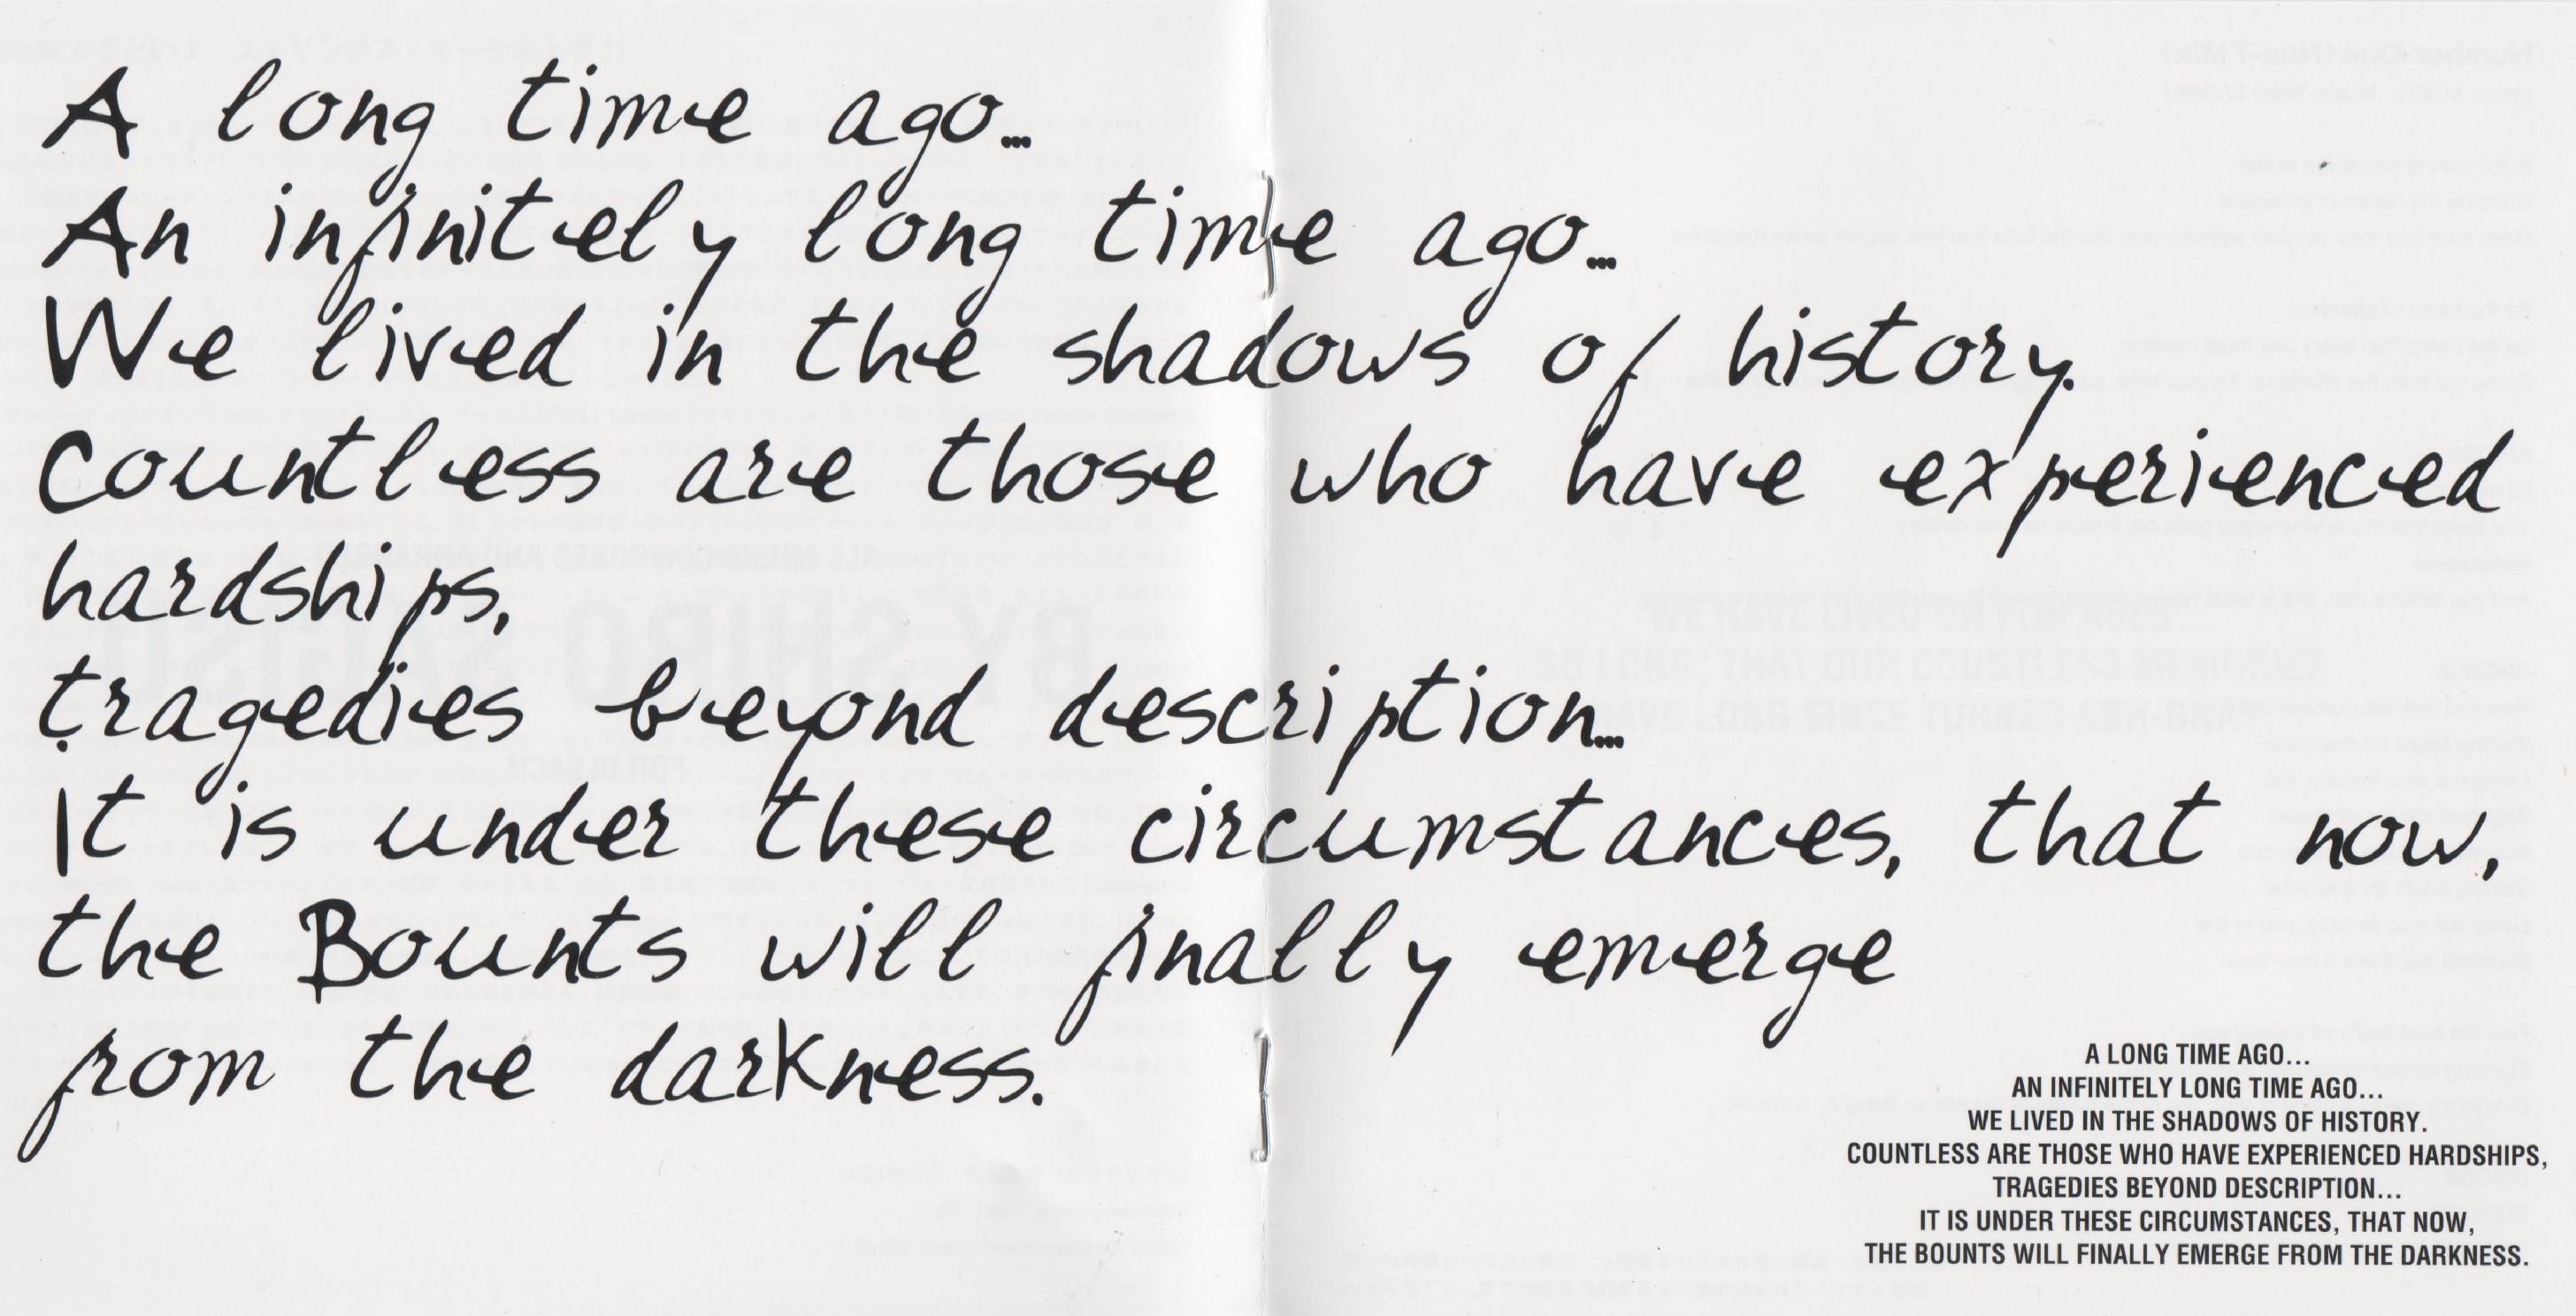 A long time ago...
An infinitely long time ago...
We lived in the shadows of history.
Countless are those who have experienced
hardships,
tragedies beyond description...
It is under these circumstances, that now,
the Bounts will finally emerge
from the darkness.
A LONG TIME AGO...
AN INFINITELY LONG TIME AGO...
WE LIVED IN THE SHADOWS OF HISTORY.
COUNTLESS ARE THOSE WHO HAVE EXPERIENCED HARDSHIPS,
TRAGEDIES BEYOND DESCRIPTION...
IT IS UNDER THESE CIRCUMSTANCES, THAT NOW,
THE BOUNTS WILL FINALLY EMERGE FROM THE DARKNESS.